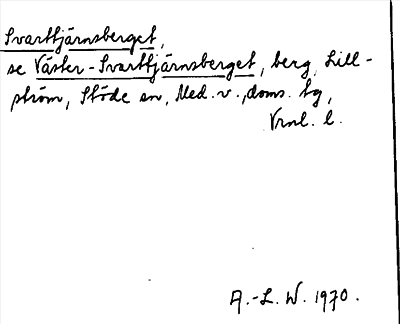 Svarttjärnsberget,
se Väster-Svarttjärnsberget, berg, Lill-
ström, Stöde sn, Med. v., doms. tg,
Vrnl. l.
A.-L. W. 1970.